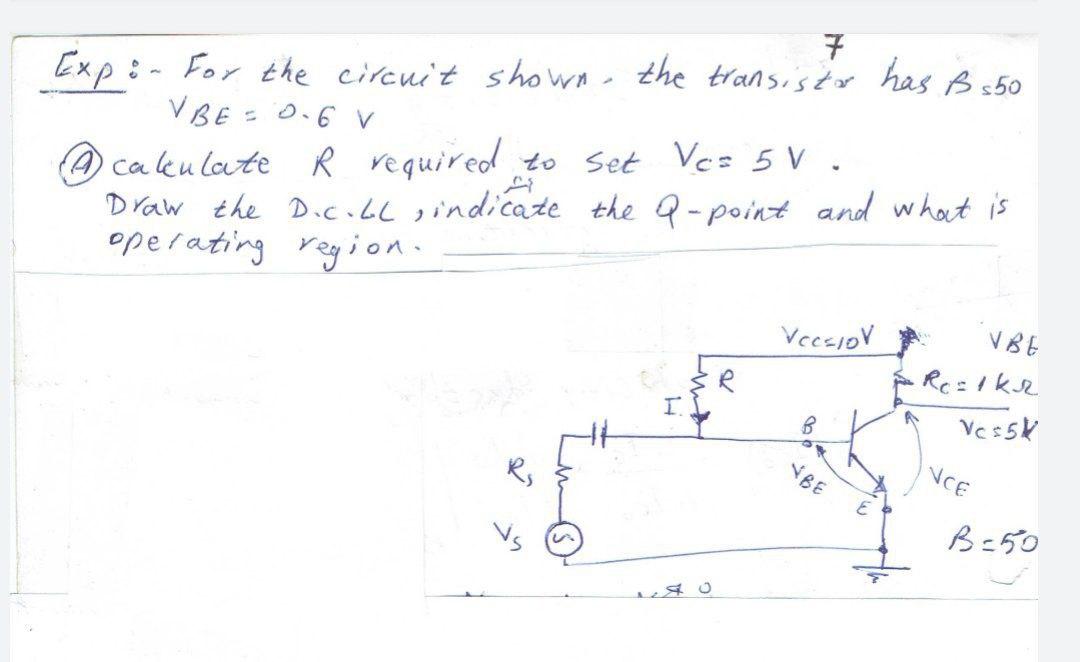 7
Exp :- For the circuit shown. the transistor has B=50
VBE = 0.6 V
(A) calculate R required to set Vc= 5 V .
Draw the D.C.LL , indicate the Q-point and what is
operating region.
Vcc=10V
VBE
R
Rc = 1 kΩ
I
Vc=5V
B
Rs
VBE
VCE
E
Vs
B=50